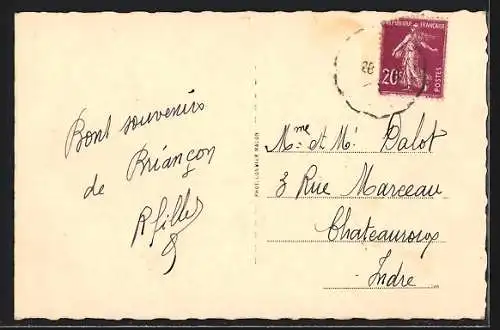 Bons souvenirs
de Briançon
R Gilles
RÉPUBLIQUE FRANÇAISE
20c
POSTES
28
Mme et Mr Dalot
3 Rue Marceau
Chateauroux
Indre